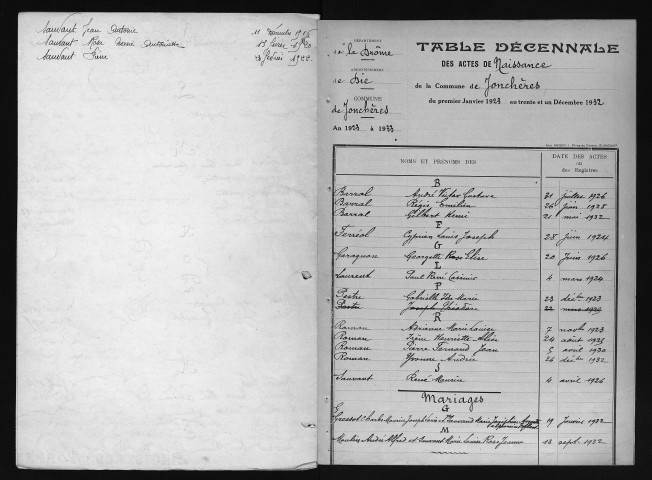 Sauvant Jean Antoine 11 1918
Sauvant Rosa Marie Antoinette 13 1920
Sauvant 1922
DÉPARTEMENT
de la Drôme
ARRONDISSEMENT
de Die
COMMUNE
de Jonchères
An 1923 à 1933
TABLE DÉCENNALE
DES ACTES DE Naissance
de la Commune de Jonchères
du premier Janvier 1923 au trente et un Décembre 1932
NOMS ET PRÉNOMS DES
DATE DES ACTES
ou
des Registres
B
Barral André Victor Gustave 31 juillet 1926
Barral Régis Emilien 26 juin 1928
Barral Gilbert Henri 21 mai 1932
F
Ferréol Cyprien Louis Joseph 28 juin 1924
G
Garagnon Georgette Rose Elise 20 juin 1926
L
Laurent Paul René Casimir 4 mars 1924
P
Pestre Gabrielle Marie 23 décbre 1923
Pestre Joseph 22 mars
R
Roman Adrienne Marie Louise 7 novb 1923
Roman Irène Henriette Alice 24 août
Roman Pierre Fernand Jean 5 avril 1930
Roman Yvonne Andrée 26 décbre 1932
S
Sauvant René Maurice 4 avril 1926
Mariages
G
Gresset Charles Maurice Joseph et Marie 19 Janvier 1932
M
Moulin André Alfred et Laurent Marie Louise Rose Jeanne 13 sept. 1932